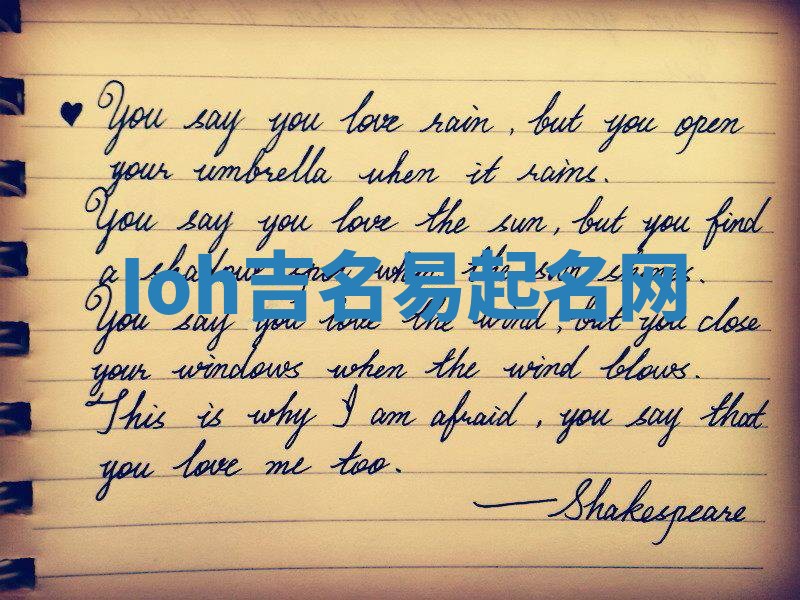 ♥ You say you love rain, but you open
your umbrella when it rains.
You say you love the sun, but you find
a shadow spot when the sun shines.
loh吉名易起名网
You say you love the wind, but you close
your windows when the wind blows.
This is why I am afraid, you say that
you love me too.
— Shakespeare